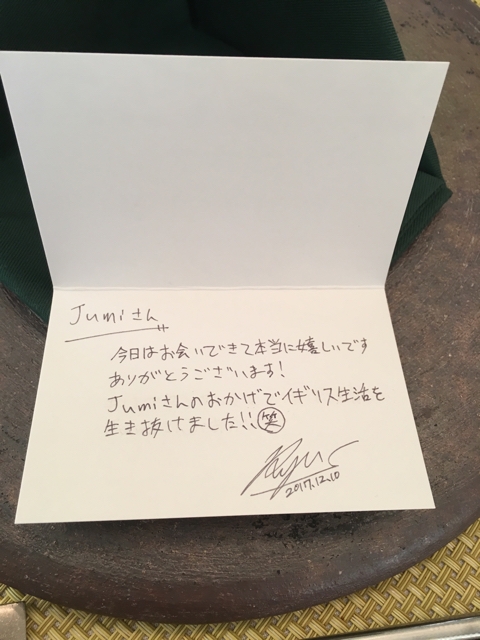 Jumiさん
今日はお会いできて本当に嬉しいです
ありがとうございます!
Jumiさんのおかげでイギリス生活を
生き抜けました!! 笑
2017.12.10